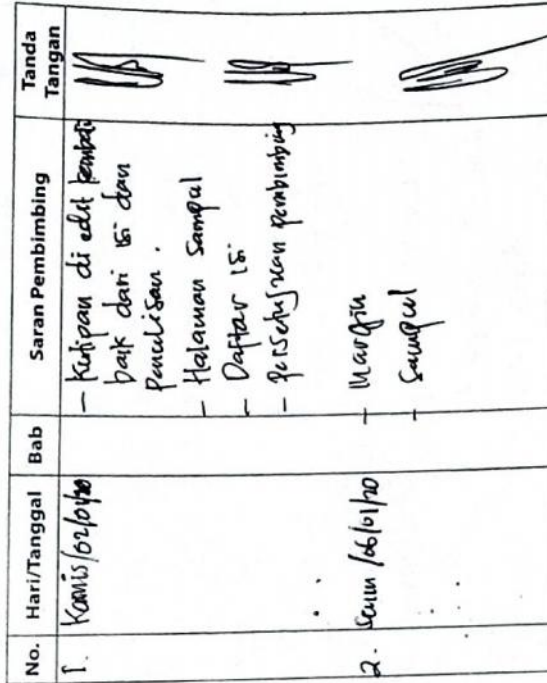 No. Hari/Tanggal Bab Saran Pembimbing Tanda Tangan
1. Kamis/02/01/20 - Kutipan di edit kembali
baik dari isi dan
penulisan.
- Halaman Sampul
- Daftar isi
- Persetujuan pembimbing
2. Senin/06/01/20 - Margin
- Sampul